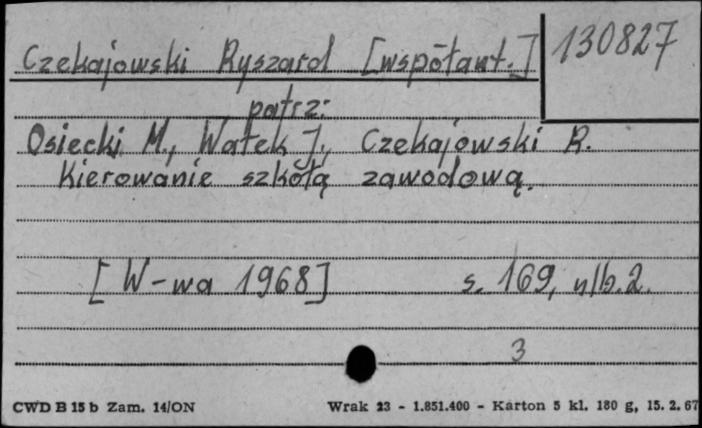 Czekajowski Ryszard [współaut.] 130827
patrz:
Osiecki M., Wałek J., Czekajowski R.
Kierowanie szkołą zawodową.
[W-wa 1968] s. 169, nlb. 2.
3
CWD B 15 b Zam. 14/ON Wrak 23 - 1.851.400 - Karton 5 kl. 180 g, 15. 2. 67